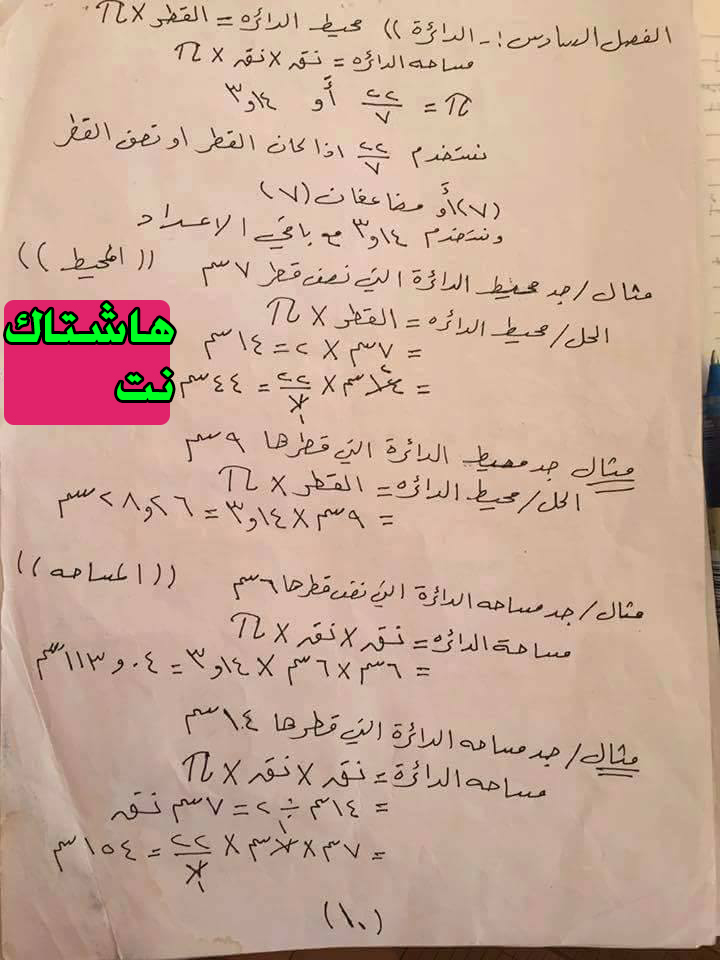 الفصل السادس :- الدائرة )) محيط الدائره = القطر × π
مساحه الدائره = نقه × نقه × π
π = ٢٢/٧ أو ٣و١٤
نستخدم ٢٢/٧ اذا كان القطر او نصف القطر
(٧) أو مضاعفات (٧)
ونستخدم ٣و١٤ مع باقي الاعداد
مثال / جد محيط الدائرة التي نصف قطر ٧سم (( المحيط ))
الحل / محيط الدائره = القطر × π
= ٧سم × ٢ = ١٤سم
= ١٤سم × ٢٢/٧ = ٤٤سم
هاشتاك
نت
مثال جد محيط الدائرة التي قطرها ٩سم
الحل / محيط الدائره = القطر × π
= ٩سم × ٣و١٤ = ٢٨و٢٦سم
مثال / جد مساحه الدائرة التي نصف قطرها ٦سم (( المساحه ))
مساحة الدائره = نقه × نقه × π
= ٦سم × ٦سم × ٣و١٤ = ١١٣و٠٤سم
مثال / جد مساحه الدائرة التي قطرها ١٤سم
مساحه الدائرة = نقه × نقه × π
= ١٤سم ÷ ٢ = ٧سم نقه
= ٧سم × ٧سم × ٢٢/٧ = ١٥٤سم
(١٠)